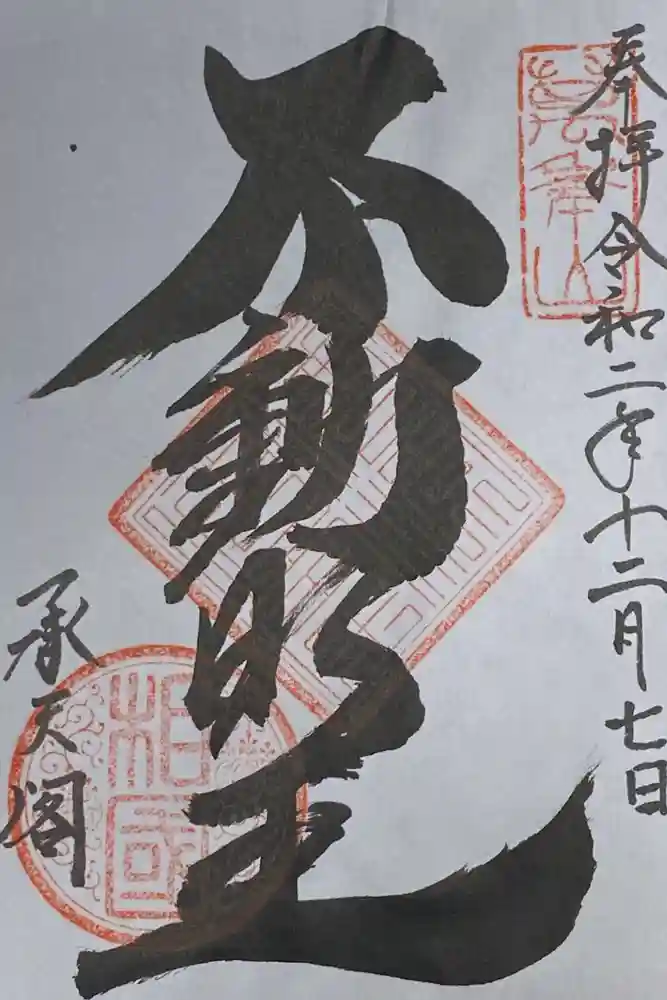 奉拝 令和二年十二月七日
不動明王
承天閣
萬年山
相国